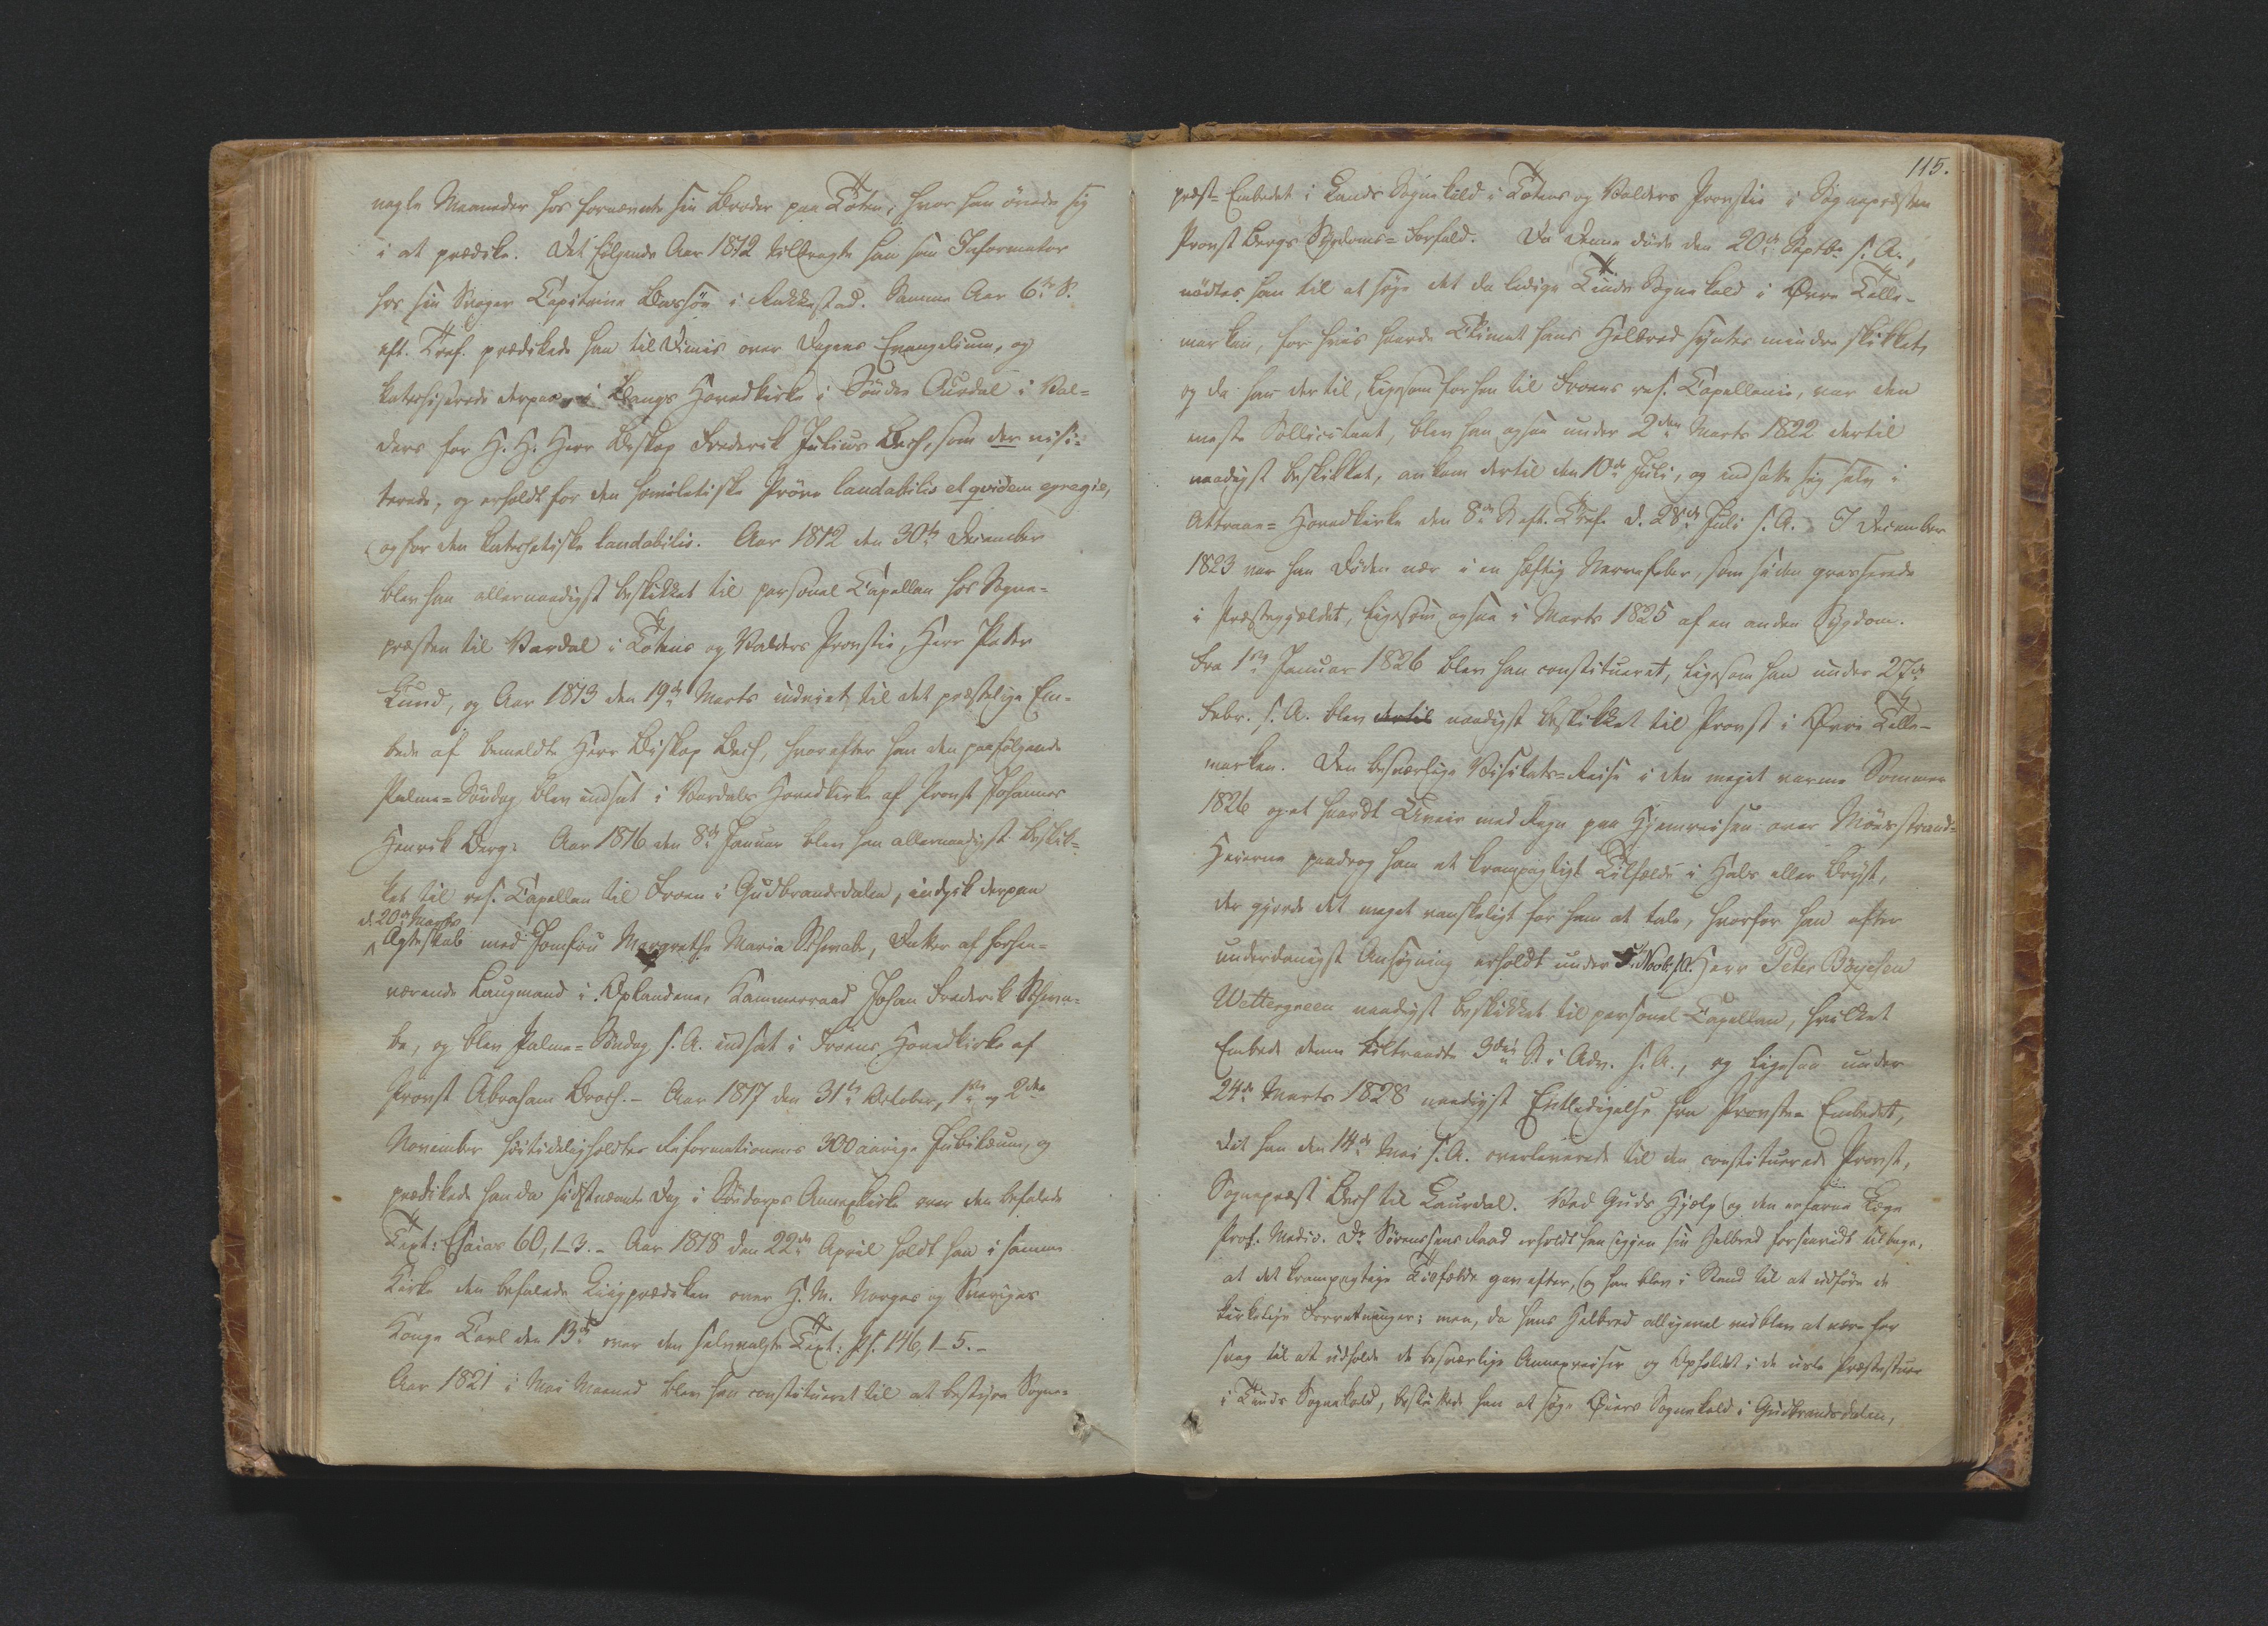 nogle Maaneder hos fornævnte sin Broder paa Toten, hvor han övede sig
i at prædike. Det følgende Aar 1812 tilbragte han som Informator
hos sin Svoger Capitaine Barsjön i Rakkestad. Samme Aar 6te S.
eft. Tref. prædikede han til Dimis over Dagens Evangelium, og
katechiserede derpaa i Bangs Hovedkirke i Söndre Aurdal i Val=
ders for H. H. Herr Biskop Frederik Julius Bech, som der visi=
terede, og erholdt for den homiletiske Pröve laudabilis et qvidem egregie,
og for den katechetiske laudabilis. Aar 1812 den 30te December
blev han allernaadigst beskikket til personel Capellan hos Sogne=
præsten til Vardal i Totens og Valders Provstie, Herr Peder
Lund, og Aar 1813 den 19de Marts indviet til det præstelige Em=
bede af bemeldte Herr Biskop Bech, hvorefter han den paafølgende
Palme=Söndag blev indsat i Vardals Hovedkirke af Provst Johannes
Henrik Berg. Aar 1816 den 8de Januar blev han allernaadigst beskik=
ket til res. Capellan til Froen i Gudbrandsdalen, indgik derpaa
d. 20de Marts
Ægteskab med Jomfru Margrethe Maria Schwabe, Datter af forhen=
værende Laugmand i Oplandene, Kammerraad Johan Frederik Schwa=
be, og blev Palme=Söndag s. A. indsat i Froens Hovedkirke af
Provst Abraham Broch. - Aar 1817 den 31te October, 1ste og 2den
November höitideligholdtes Reformationens 300 aarige Jubilæum, og
prædikede han da sidstnævnte Dag i Södorps Annexkirke over den befalede
Text: Esaias 60, 1-3. - Aar 1818 den 22de April holdt han i samme
Kirke den befalede Liigprædiken over H. M. Norges og Sveriges
Konge Carl den 13de over den selvvalgte Text: Ps. 146, 1-5. -
Aar 1821 i Mai Maaned blev han constitueret til at bestyre Sogne=
115.
præst=Embedet i Lands Sognekald i Totens og Valders Provstie i Sognepræsten
Provst Bergs Sygdoms=Forfald. Da denne döde den 20de Septbr. s. A.,
nödtes han til at søge det da ledige Tinds Sognekald i Øvre Telle-
marken, for hvis haarde Climat hans Helbred syntes mindre skikket,
og da han dertil, ligesom forhen til Froens res. Capellanie, var den
eneste Sollicitant, blev han ogsaa under 2den Marts 1822 dertil
naadigst beskikket, ankom dertil den 10de Juli, og indsatte sig selv i
Attraae=Hovedkirke den 8de S. eft. Tref. d. 28de Juli s. A. I December
1823 var han Döden nær i en heftig Nervefeber, som siden grasserede
i Præstegjældet, ligesom ogsaa i Marts 1825 af en anden Sygdom.
Fra 1ste Januar 1826 blev han constitueret, ligesom han under 27de
Febr. s. A. blev dertil naadigst beskikket til Provst i Øvre Telle-
marken. Den besværlige Visitats=Reise i den meget varme Sommer
1826 og et haardt Uveir med Regn paa Hjemreisen over Mösstrand=
Heierne paadrog ham et krampagtigt Tilfælde i Hals eller Bryst,
der gjorde det meget vanskeligt for ham at tale, hvorfor han efter
underdanigst Ansøgning erholdt under Novbr. s. A. Herr Peter Böyesen
Wettergreen naadigst beskikket til personel Capellan, hvilket
Embede denne tiltraadte 3die S. i Adv. s. A., og ligesaa under
24de Marts 1828 naadigst Entledigelse fra Provste=Embedet,
dit han den 14de Mai s. A. overleverede til den constituerede Provst,
Sognepræst Bech til Laurdal. Ved Guds Hjælp og den erfarne Læge
Prof. Medic. Dr. Sörenssens Raad erholdt han igjen sin Helbred forsaavidt tilbage,
at det krampagtige Tilfælde gav efter, og han blev i Stand til at udføre de
kirkelige Forretninger; men, da hans Helbred alligevel vedblev at være for
svag til at udholde de besværlige Annexreiser og Opholdet i de usle Præstestuer
i Tinds Sognekald, besluttede han at søge Öiers Sognekald i Gudbrandsdalen,